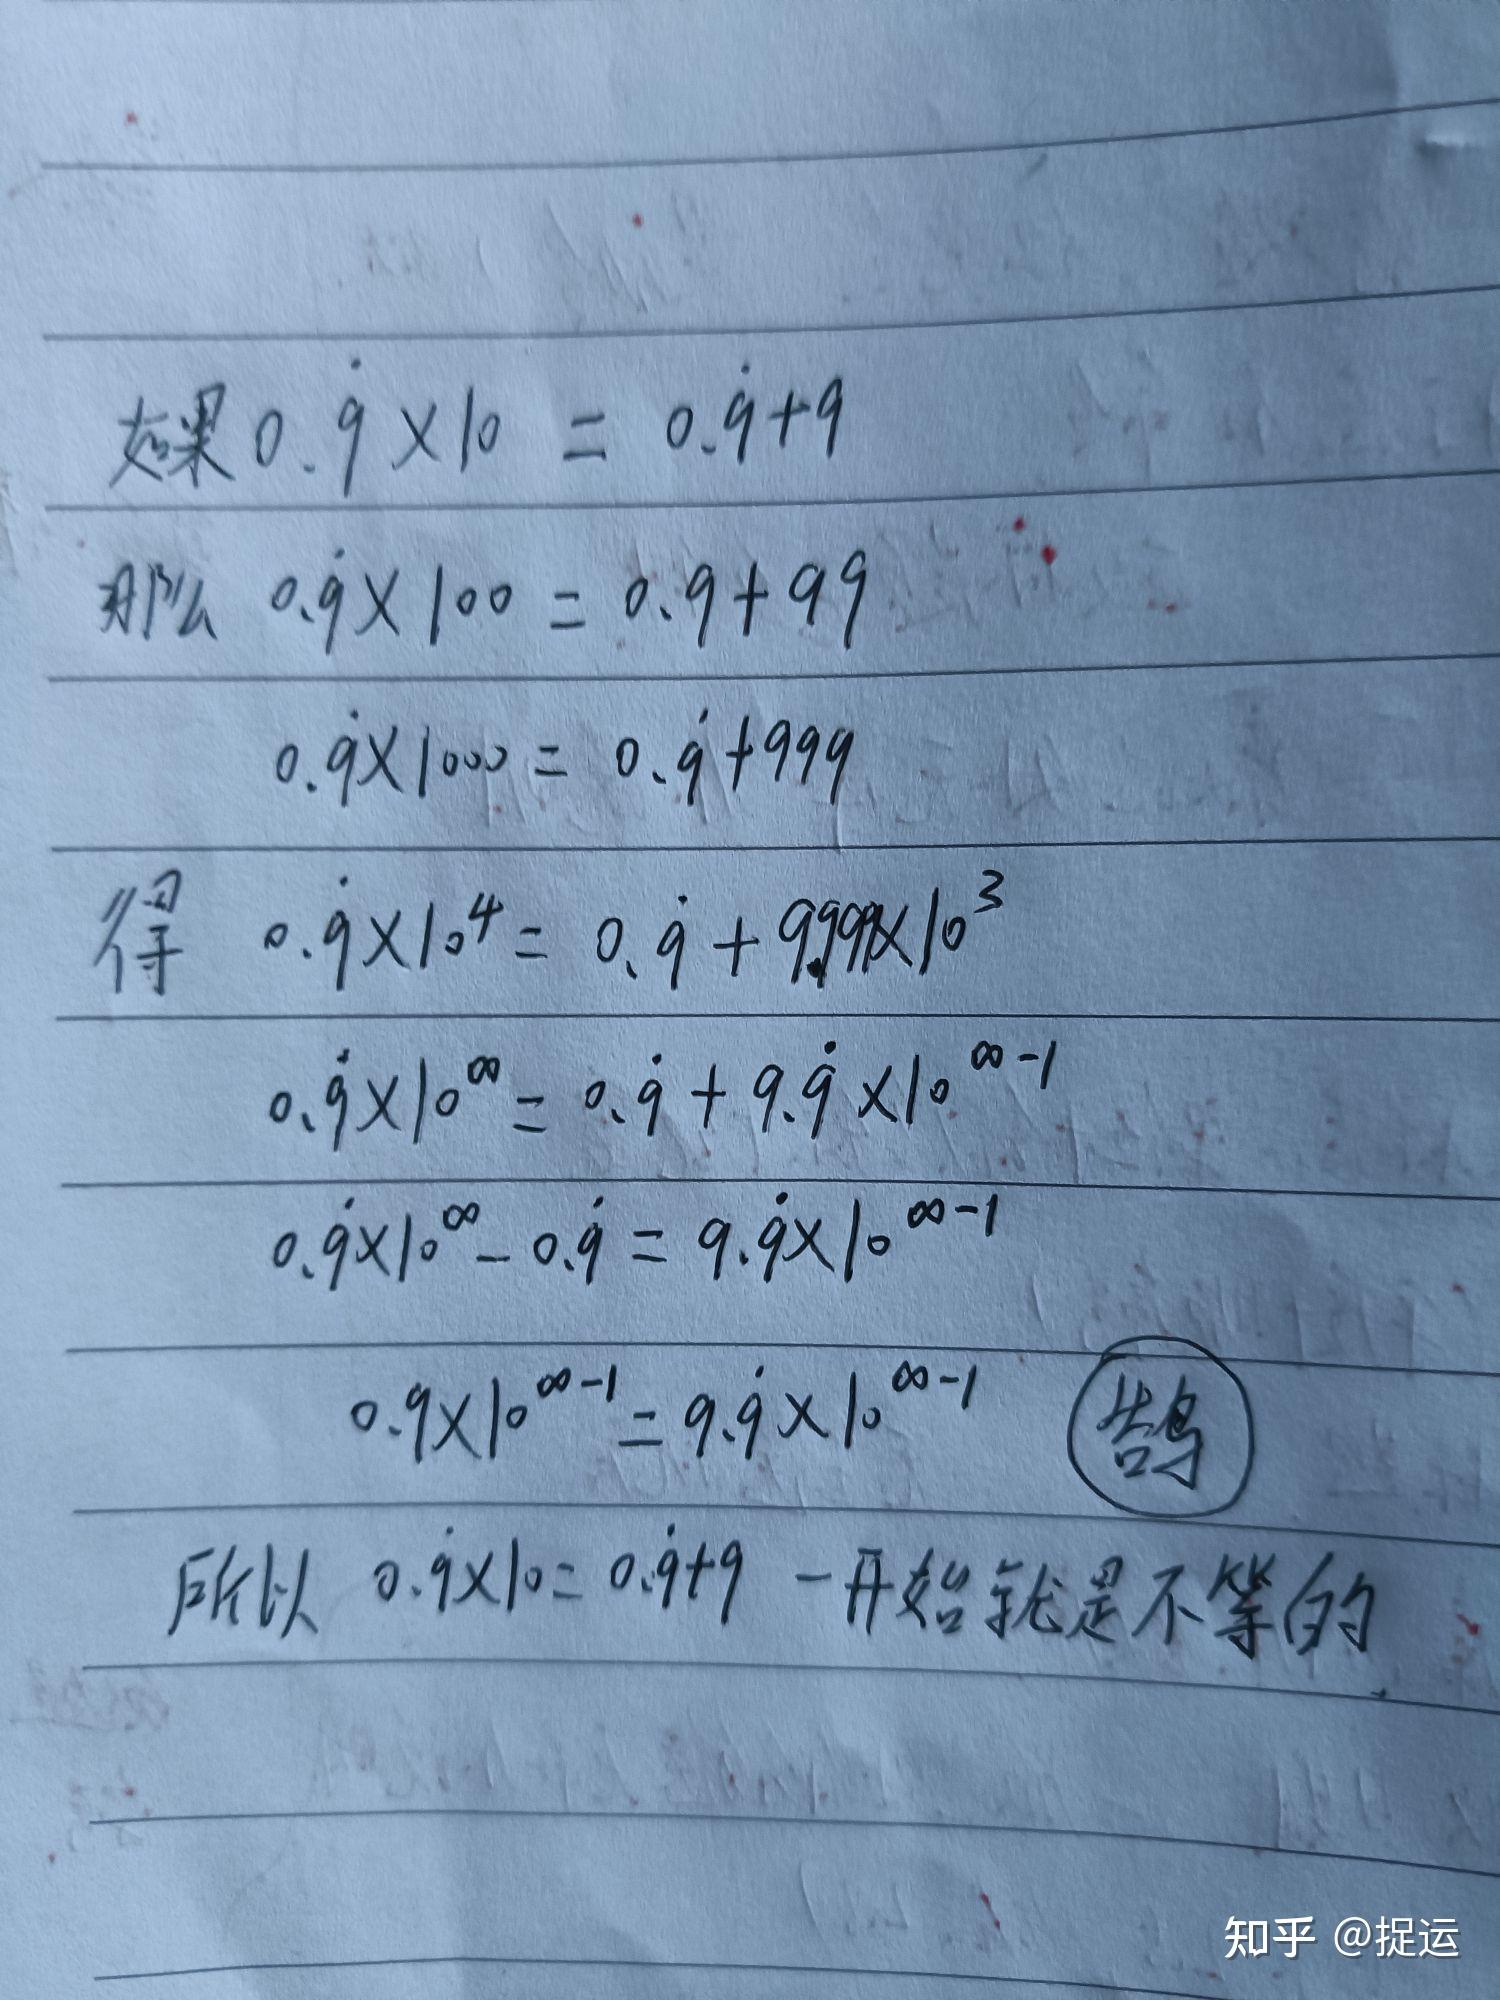 如果 0.9̇×10 = 0.9̇+9
那么 0.9̇×100 = 0.9+99
0.9̇×1000 = 0.9̇+999
得 0.9̇×10⁴ = 0.9̇+9.999×10³
0.9̇×10^∞ = 0.9̇+9.9̇×10^∞-1
0.9̇×10^∞-0.9̇ = 9.9̇×10^∞-1
0.9×10^∞-1 = 9.9̇×10^∞-1 鹄
所以 0.9̇×10=0.9̇+9 一开始就是不等的
知乎 @捉运